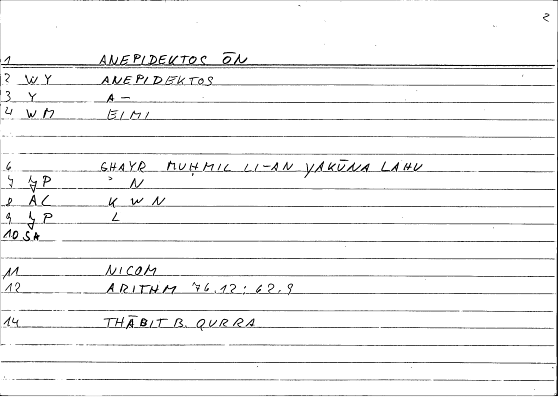 2
1 ANEPIDEKTOS ŌN
2 WY ANEPIDEKTOS
3 Y A-
4 WM EIMI
6 GHAYR MUḤMIL LI-AN YAKŪNA LAHU
7 ʒP ʾN
8 AC KWN
9 ʒP L
10 SA
11 NICOM
12 ARITHM 76.12; 62.9
14 THĀBIT B. QURRA